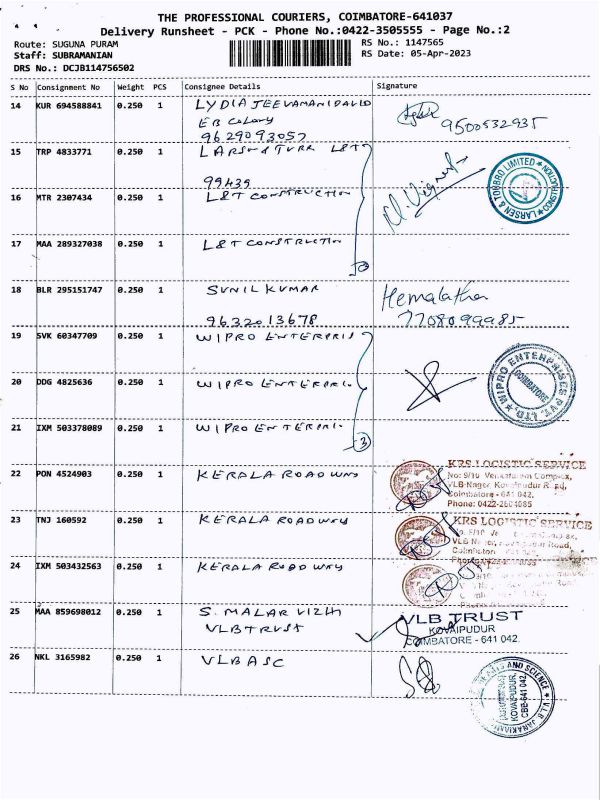 THE PROFESSIONAL COURIERS, COIMBATORE-641037
Delivery Runsheet - PCK - Phone No.:0422-3505555 - Page No.:2
Route: SUGUNA PURAM
RS No.: 1147565
Staff: SUBRAMANIAN
RS Date: 05-Apr-2023
DRS No.: DCJB114756502
S No Consignment No Weight PCS Consignee Details Signature
14 KUR 694588841 0.250 1 LYDIA JEEVAMANI DAVID
EB Colony
9629093057
9500532935
15 TRP 4833771 0.250 1 LARSEN & TURB L&T
99439
16 MTR 2307434 0.250 1 L&T CONSTRUCTION
17 MAA 289327038 0.250 1 L&T CONSTRUCTION
LARSEN & TOUBRO LIMITED CONSTRUCTION
18 BLR 295151747 0.250 1 SUNIL KUMAR
9632013678
Hemalatha
7708099985
19 SVK 60347709 0.250 1 WIPRO ENTERPRIS
20 DDG 4825636 0.250 1 WIPRO ENTERPRI
21 IXM 503378089 0.250 1 WIPRO ENTERPRI
3
WIPRO ENTERPRISES PVT. LTD.
COIMBATORE
22 PON 4524903 0.250 1 KERALA ROADWAY
KRS LOGISTIC SERVICE
No: 9/10 Venkataram Complex,
VLB Nagar, Kovaipudur Road,
Coimbatore - 641 042.
Phone: 0422-2604085
23 TNJ 160592 0.250 1 KERALA ROADWAY
KRS LOGISTIC SERVICE
24 IXM 503432563 0.250 1 KERALA ROADWAY
25 MAA 859698012 0.250 1 S. MALAR VIZHI
VLB TRUST
VLB TRUST
KOVAIPUDUR
COIMBATORE - 641 042.
26 NKL 3165982 0.250 1 VLBASC
ARTS AND SCIENCE
V.L.B. JANAKIAMMAL
KOVAIPUDUR,
CBE-641 042